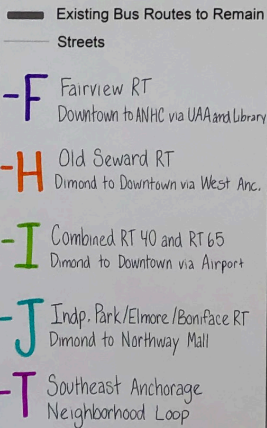 Existing Bus Routes to Remain
Streets
-F Fairview RT
Downtown to ANHC via UAA and Library
-H Old Seward RT
Dimond to Downtown via West Anc.
-I Combined RT 40 and RT 65
Dimond to Downtown via Airport
-J Indp. Park/Elmore/Boniface RT
Dimond to Northway Mall
-T Southeast Anchorage
Neighborhood Loop